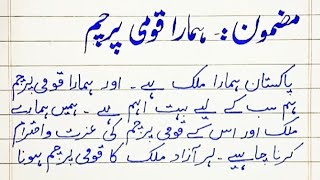 مضمون:۔ ہمارا قومی پرچم
پاکستان ہمارا ملک ہے۔ اور ہمارا قومی پرچم
ہم سب کے لیے بہت اہم ہے۔ ہمیں ہمارے
ملک اور اس کے قومی پرچم کی عزت و احترام
کرنا چاہیے۔ ہر آزاد ملک کا قومی پرچم ہونا